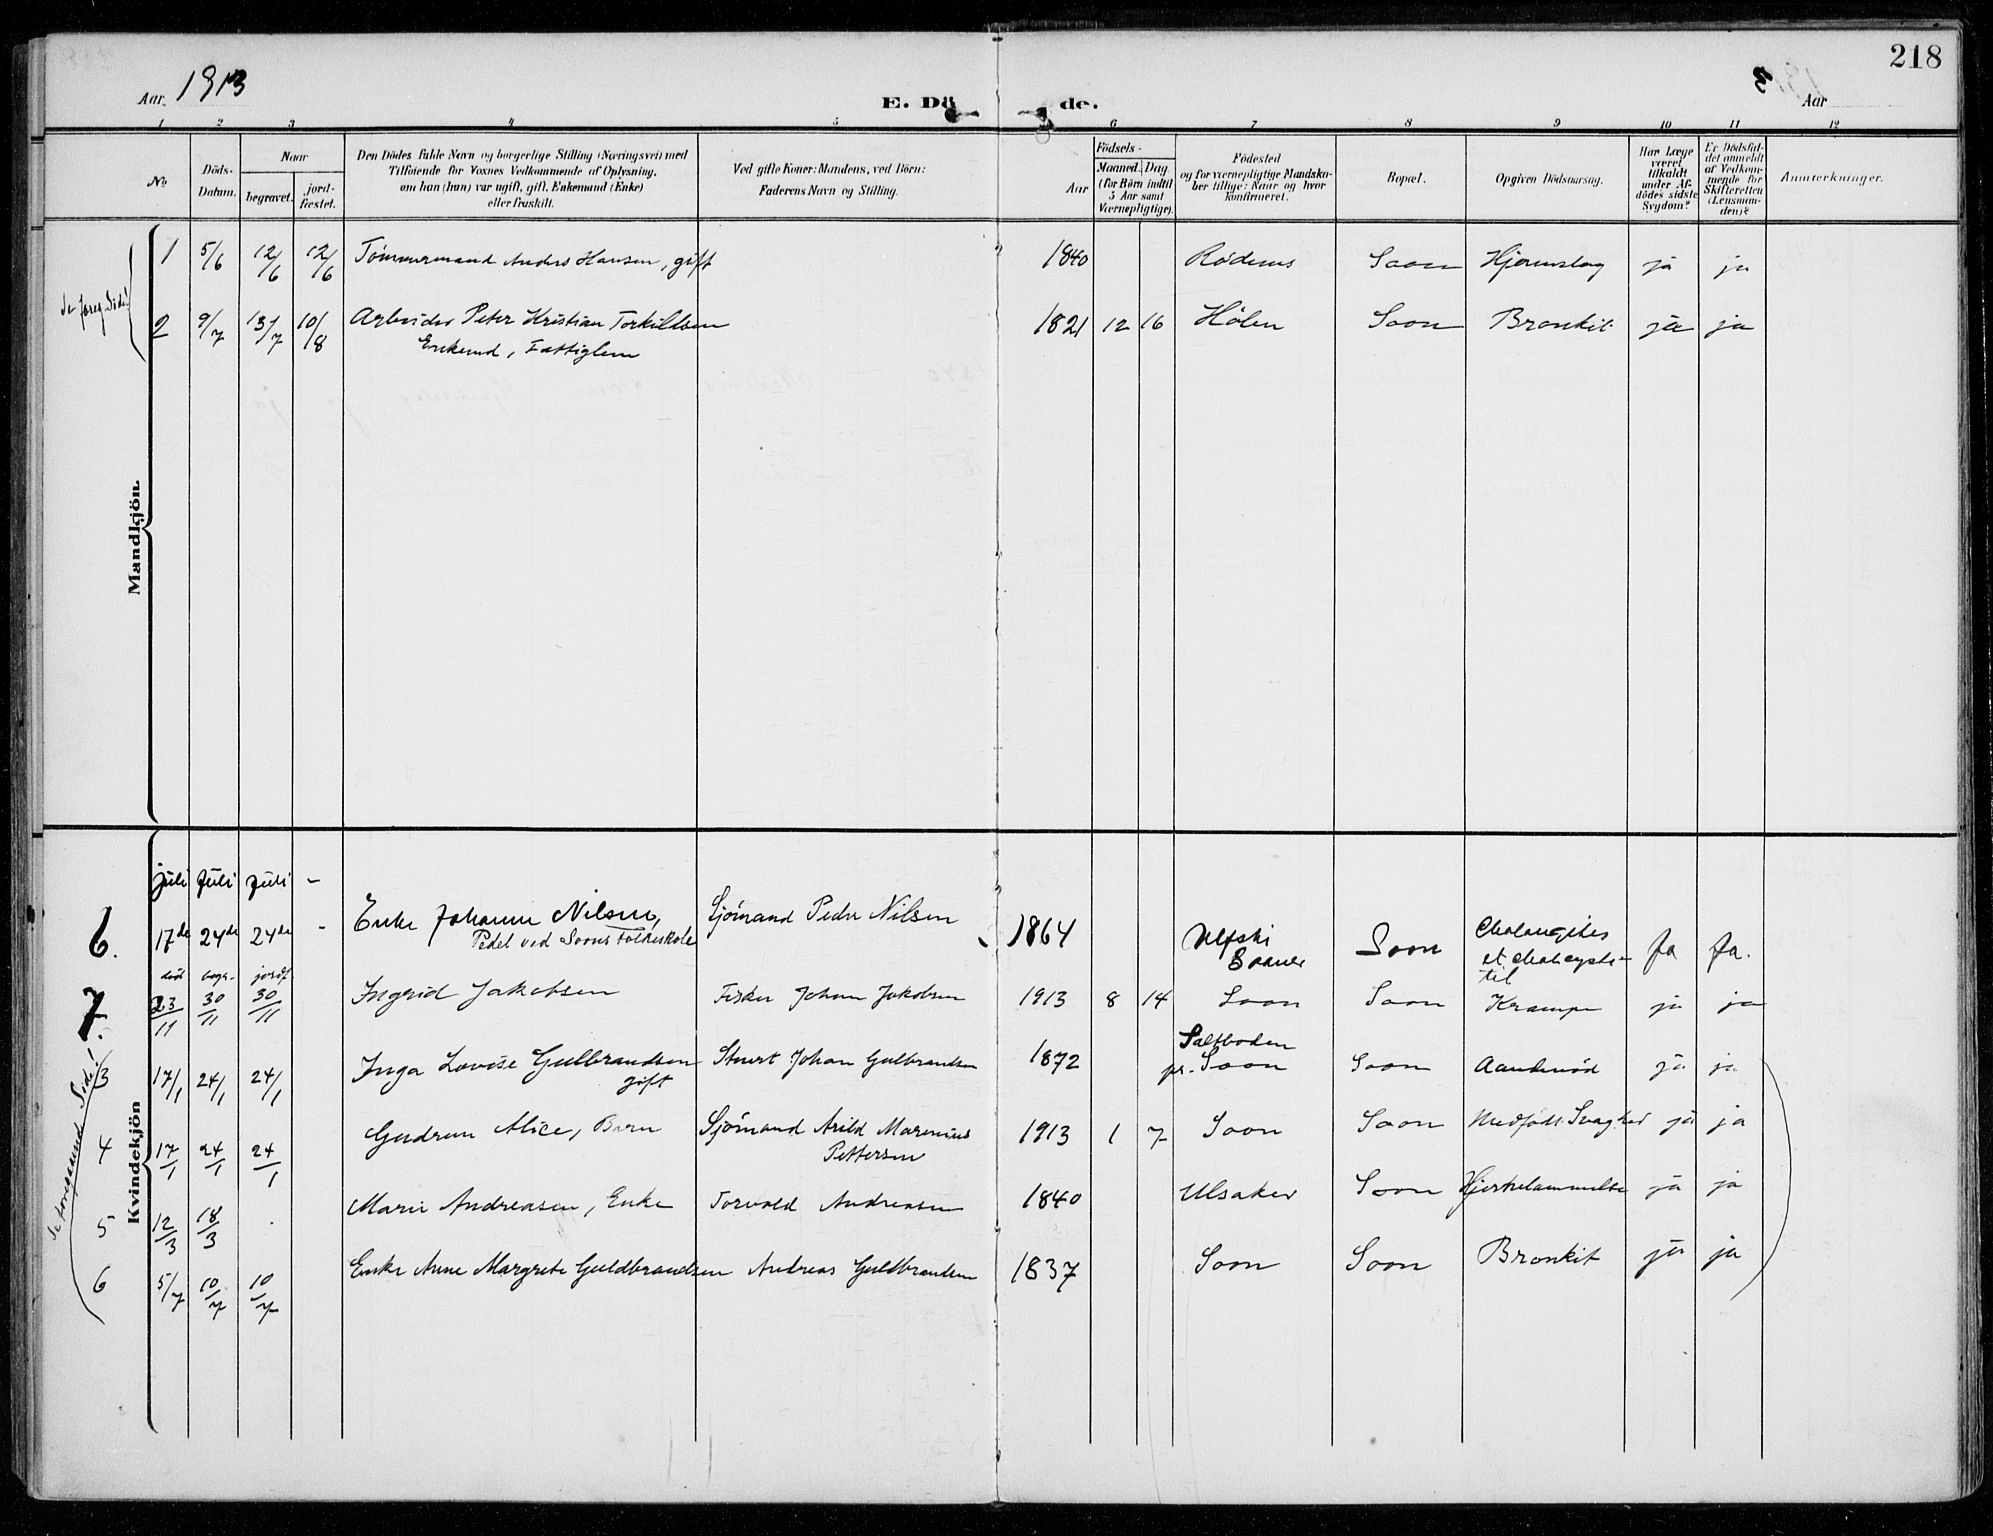 218
Aar 1913
E. Dö de.
Aar
1 2 3 4 5 6 7 8 9 10 11 12
No
Döds-
Datum.
Naar
begravet.
jord-
fæstet.
Den Dödes fulde Navn og borgerlige Stilling (Næringsvei) med
Tilföiende for Voxnes Vedkommende af Oplysning,
om han (hun) var ugift, gift, Enkemand (Enke)
eller fraskilt.
Ved gifte Koner: Mandens, ved Börn:
Faderens Navn og Stilling.
Födsels-
Aar
Maaned. Dag
(for Börn indtil
5 Aar samt
Værnepligtige).
Födested
og for værnepligtige Mandska-
ber tillige: Naar og hvor
konfirmeret.
Bopæl.
Opgiven Dödsaarsag.
Har Læge
været
tilkaldt
under Af-
dödes sidste
Sygdom?
Er Dödsfal-
det anmeldt
af Vedkom-
mende for
Skifteretten
(Lensman-
den)?
Anmærkninger.
Mandkjön.
se foreg. Side!
1 5/6 12/6 12/6 Tömmermand Anders Hansen, gift 1840 Rödenes Soon Hjerneslag ja ja
2 9/7 13/7 10/8 Arbeider Peter Kristian Torkildsen 1821 12 16 Hölen Soon Bronkit ja ja
Enkemd, Fattiglem
Kvindekjön
juli Juli Juli -
6. 17de 24de 24de - Enke Johanne Nilsen, Sjömand Peder Nilsen 1864 Soon Cholangitis Ja Ja.
Pedel ved Soons Folkeskole
død begr. jordf.
7. 23/11 30/11 30/11 Ingrid Jakobsen Fisker Johan Jakobsen 1913 8 14 Soon Soon Krampe ja ja
Saltboden
3 17/1 24/1 24/1 Inga Lovise Gulbrandsen Stuert Johan Gulbrandsen 1872 pr. Soon Soon Aandenöd ja ja
gift
4 17/1 24/1 24/1 Gudrun Alice, Barn Sjömand Arild Marenius 1913 1 7 Soon Soon Medfödt Svaghed ja ja
Pettersen
5 12/3 18/3 Marie Andreasen, Enke Torvald Andreasen 1840 Ulsaker Soon Hjertelammelse ja ja
6 5/7 10/7 10/7 Enke Anne Margrete Guldbrandsen Andreas Guldbrandsen 1837 Soon Soon Bronkit ja ja
se foregaaende Side!